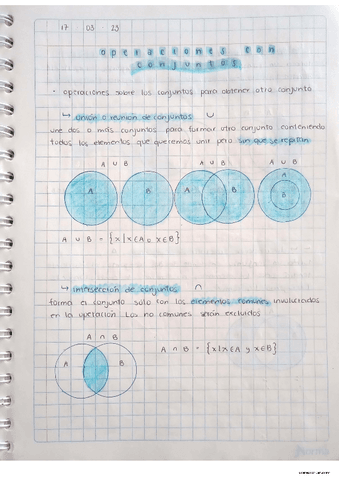 17 03 23
operaciones con
conjuntos
• operaciones sobre los conjuntos para obtener otro conjunto
↳ unión o reunión de conjuntos ∪
une dos o más conjuntos para formar otro conjunto conteniendo
todos los elementos que queremos unir pero sin que se repitan
A ∪ B A ∪ B A ∪ B
A B A B A B
A ∪ B = {x|x∈A o x∈B}
↳ intersección de conjuntos ∩
forma el conjunto sólo con los elementos comunes involucrados
en la operación. Los no comunes serán excluidos
A ∩ B
A B
A ∩ B = {x|x∈A y x∈B}